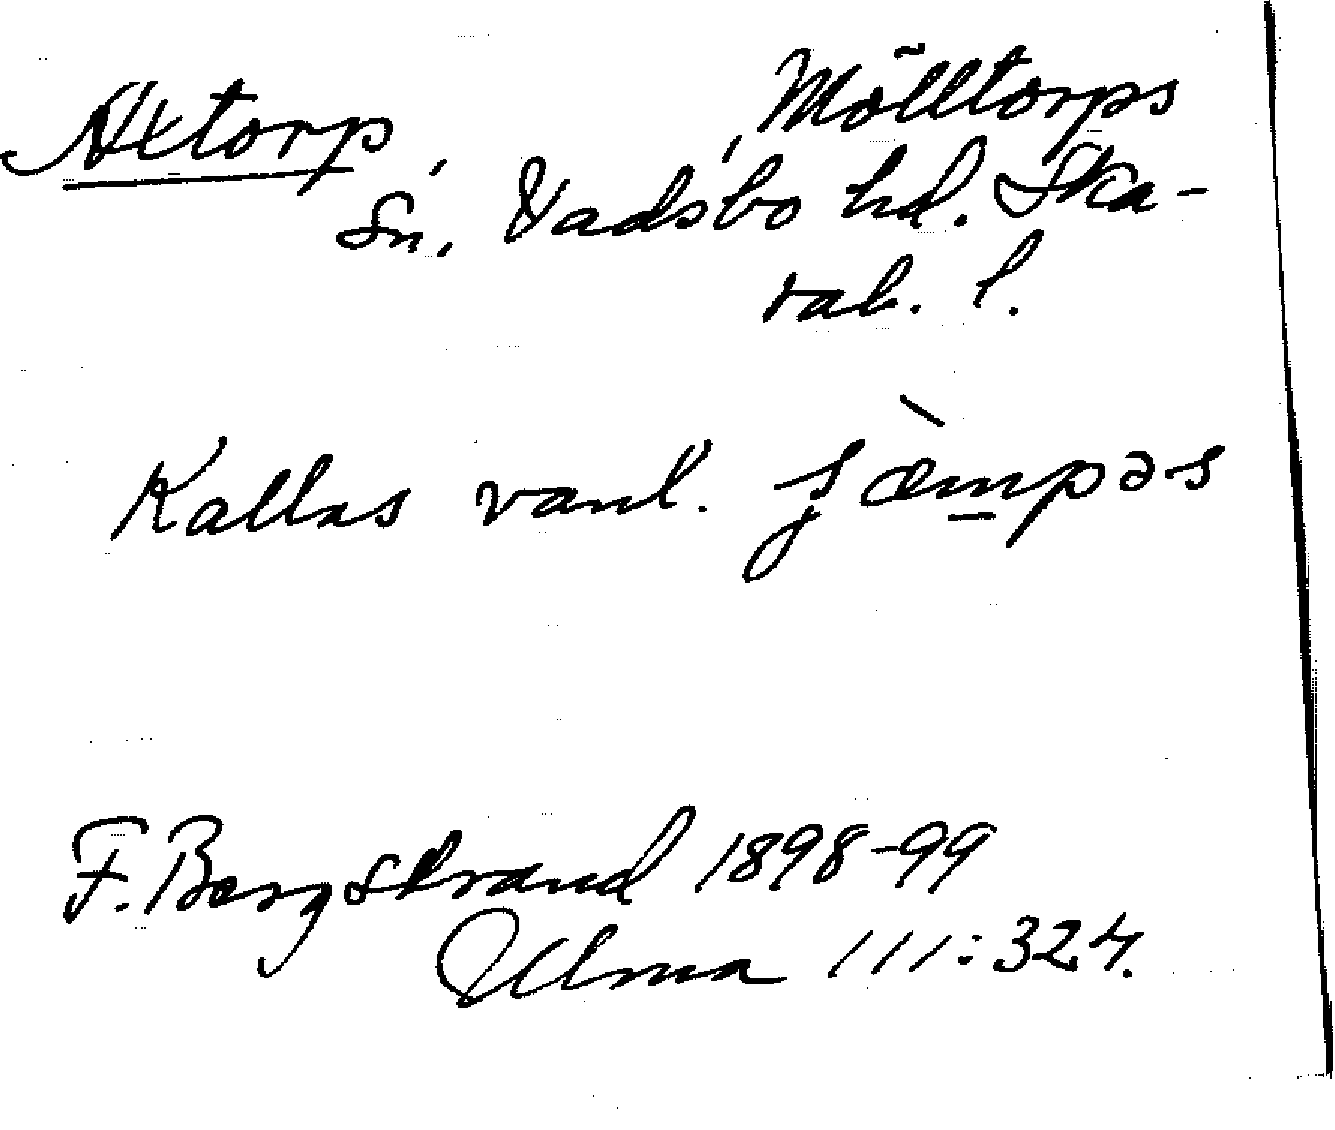 Axtorp, Mölltorps
Sn. Vadsbo hd. Ska-
rab. l.
Kallas vanl. jæ̀mpəs
F. Bergstrand 1898-99
Ulma 111:324.